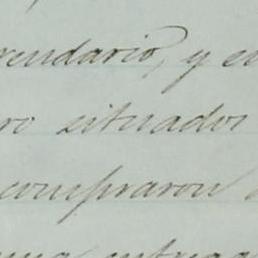 rendario, y en
ro situados
compraron